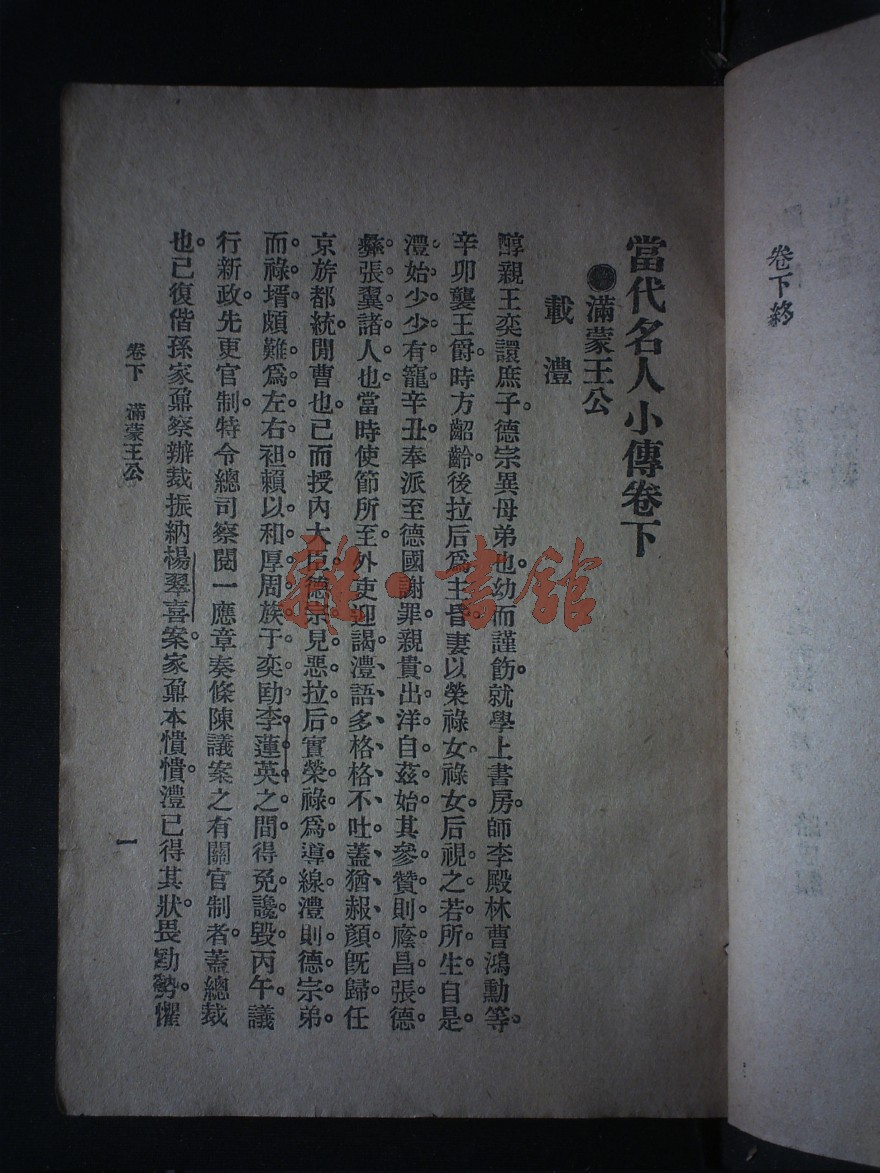 當代名人小傳卷下
滿蒙王公
載灃
醇親王奕譞庶子。德宗異母弟也。幼而謹飭。就學上書房。師李殿林曹鴻勳等。
辛卯襲王爵。時方齠齡。後拉后爲主昏。妻以榮祿女。祿女后視之若所生。自是
灃始少少有寵。辛丑奉派至德國謝罪。親貴出洋自茲始。其參贊則廕昌張德
彝張翼諸人也。當時使節所至。外吏迎謁。灃語多格格不吐。蓋猶赧顏。旣歸任
京旂都統。閒曹也。已而授內大臣。德宗見惡拉后。實榮祿爲導線。灃則德宗弟。
而祿壻。頗難爲左右袒。賴以和厚周旋于奕劻李蓮英之間。得免讒毀。丙午議
行新政。先更官制。特令總司察閱一應章奏條陳議案之有關官制者。蓋總裁
也。已復偕孫家鼐察辦裁振納楊翠喜案。家鼐本憒憒。灃已得其狀。畏劻勢。懼
卷下 滿蒙王公
一
卷下終
雜·書館